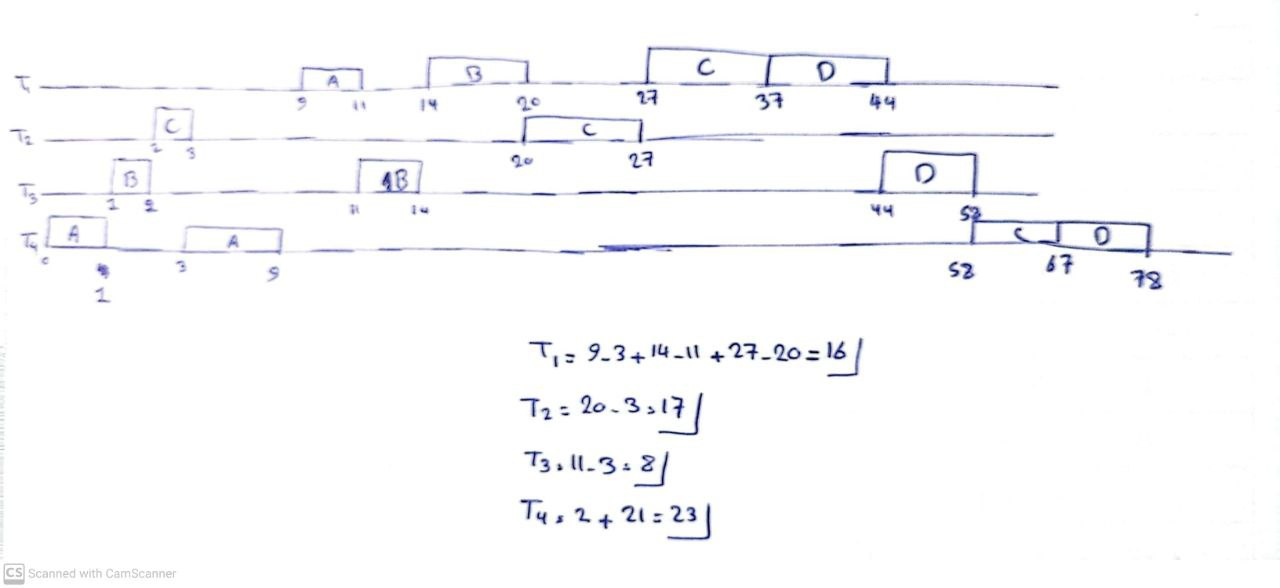 T1 A B C D
9 11 14 20 27 37 44
T2 C C
2 3 20 27
T3 B B D
1 2 11 14 44 52
T4 A A C D
0 1 3 9 52 67 78
T1 = 9-3+14-11+27-20=16
T2 = 20-3=17
T3 = 11-3=8
T4 = 2+21=23
CS Scanned with CamScanner